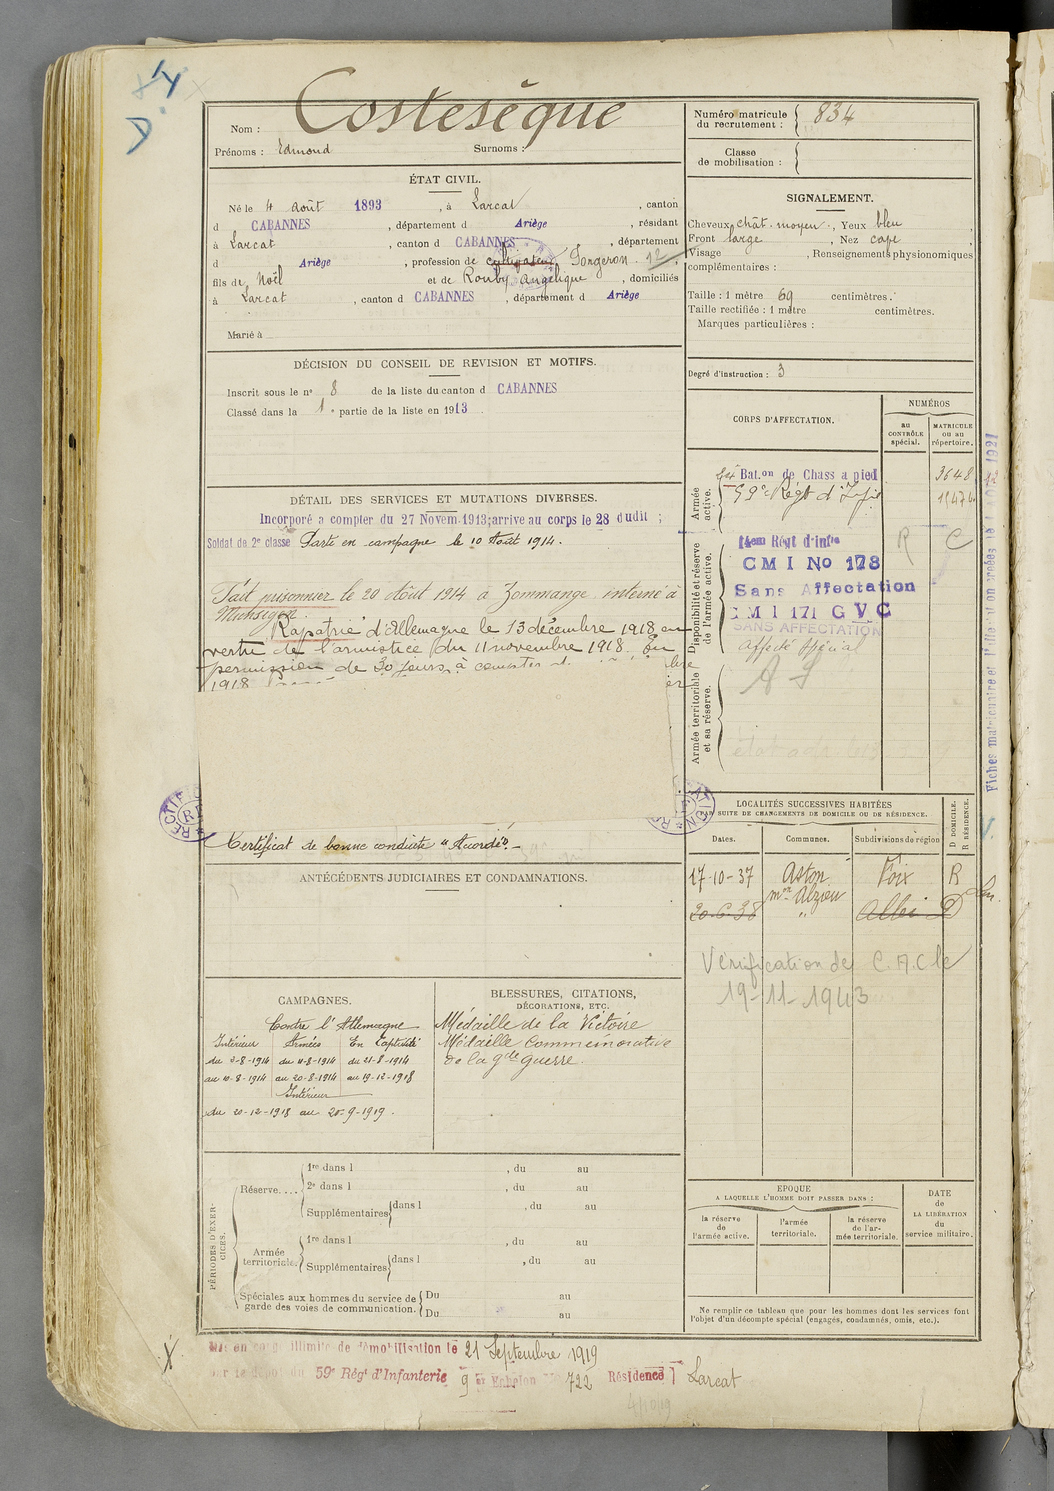 14
D
Nom : Costesèque
Prénoms : Edmond Surnoms :
Numéro matricule du recrutement : 834
Classe de mobilisation :
ÉTAT CIVIL.
Né le 4 août 1893, à Larcat, canton
d CABANNES, département d Ariège, résidant
à Larcat, canton d CABANNES, département
d Ariège, profession de cultivateur Forgeron 12
fils de Noël et de Rouby Angélique, domiciliés
à Larcat, canton d CABANNES, département d Ariège
Marié à
SIGNALEMENT.
Cheveux chât. moyen, Yeux bleu
Front large, Nez cave
Visage, Renseignements physionomiques
complémentaires :
Taille : 1 mètre 69 centimètres.
Taille rectifiée : 1 mètre centimètres.
Marques particulières :
Degré d'instruction : 3
DÉCISION DU CONSEIL DE REVISION ET MOTIFS.
Inscrit sous le n° 8 de la liste du canton d CABANNES
Classé dans la 1e partie de la liste en 1913.
DÉTAIL DES SERVICES ET MUTATIONS DIVERSES.
Incorporé a compter du 27 Novem. 1913; arrive au corps le 28 dudit ;
Soldat de 2e classe Parti en campagne le 10 Août 1914.
Fait prisonnier le 20 Août 1914 à Zommange interné à
Rapatrié d'Allemagne le 13 décembre 1918 en
vertu de l'armistice du 11 novembre 1918. En
permission de 30 jours à compter
1918
Certificat de bonne conduite "Accordé".
CORPS D'AFFECTATION.
NUMÉROS
au CONTRÔLE spécial.
MATRICULE ou au répertoire.
Armée active.
Bat.on de Chass a pied 3648
59e Régt d'Infie
14em Régt d'infie
Disponibilité et réserve de l'armée active.
CMI No 178
Sans Affectation
CMI 171 GVC
SANS AFFECTATION
Affecté spécial
AS
R C
Armée territoriale et sa réserve.
ANTÉCÉDENTS JUDICIAIRES ET CONDAMNATIONS.
LOCALITÉS SUCCESSIVES HABITÉES
PAR SUITE DE CHANGEMENTS DE DOMICILE OU DE RÉSIDENCE.
Dates. Communes. Subdivisions de région
D DOMICILE.
R RÉSIDENCE.
17-10-37 Aston Foix R
mon Alzieu
20-6-38 " Albi D
Vérification de C.A.C le
19-11-1943
CAMPAGNES.
Contre l'Allemagne
Intérieur Armées En Captivité
du 2-8-1914 du 11-8-1914 du 21-8-1914
au 10-8-1914 au 20-8-1914 au 19-12-1918
Intérieur
du 20-12-1918 au 20-9-1919.
BLESSURES, CITATIONS,
DÉCORATIONS, ETC.
Médaille de la Victoire
Médaille Commémorative
de la gde guerre.
PÉRIODES D'EXERCICES.
Réserve....
1re dans l , du au
2e dans l , du au
Supplémentaires dans l , du au
Armée territoriale.
1re dans l , du au
Supplémentaires dans l , du au
Spéciales aux hommes du service de garde des voies de communication.
Du au
Du au
EPOQUE
A LAQUELLE L'HOMME DOIT PASSER DANS :
la réserve de l'armée active.
l'armée territoriale.
la réserve de l'armée territoriale.
DATE de LA LIBÉRATION du service militaire.
Ne remplir ce tableau que pour les hommes dont les services font
l'objet d'un décompte spécial (engagés, condamnés, omis, etc.).
Mis en congé illimité de démobilisation le 21 Septembre 1919
sur le dépôt du 59e Régt d'Infanterie 9 er Echelon No 722 Résidence Larcat
4/10/19